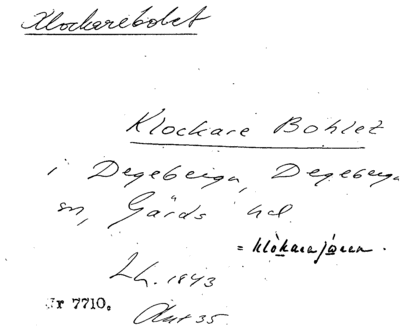 Klockarebolet
Klockare Bohlet
i Degeberga, Degeberga
sn, Gärds hd.
= klòkarejåren.
Lk. 1843
Nr 7710.
Akt 35